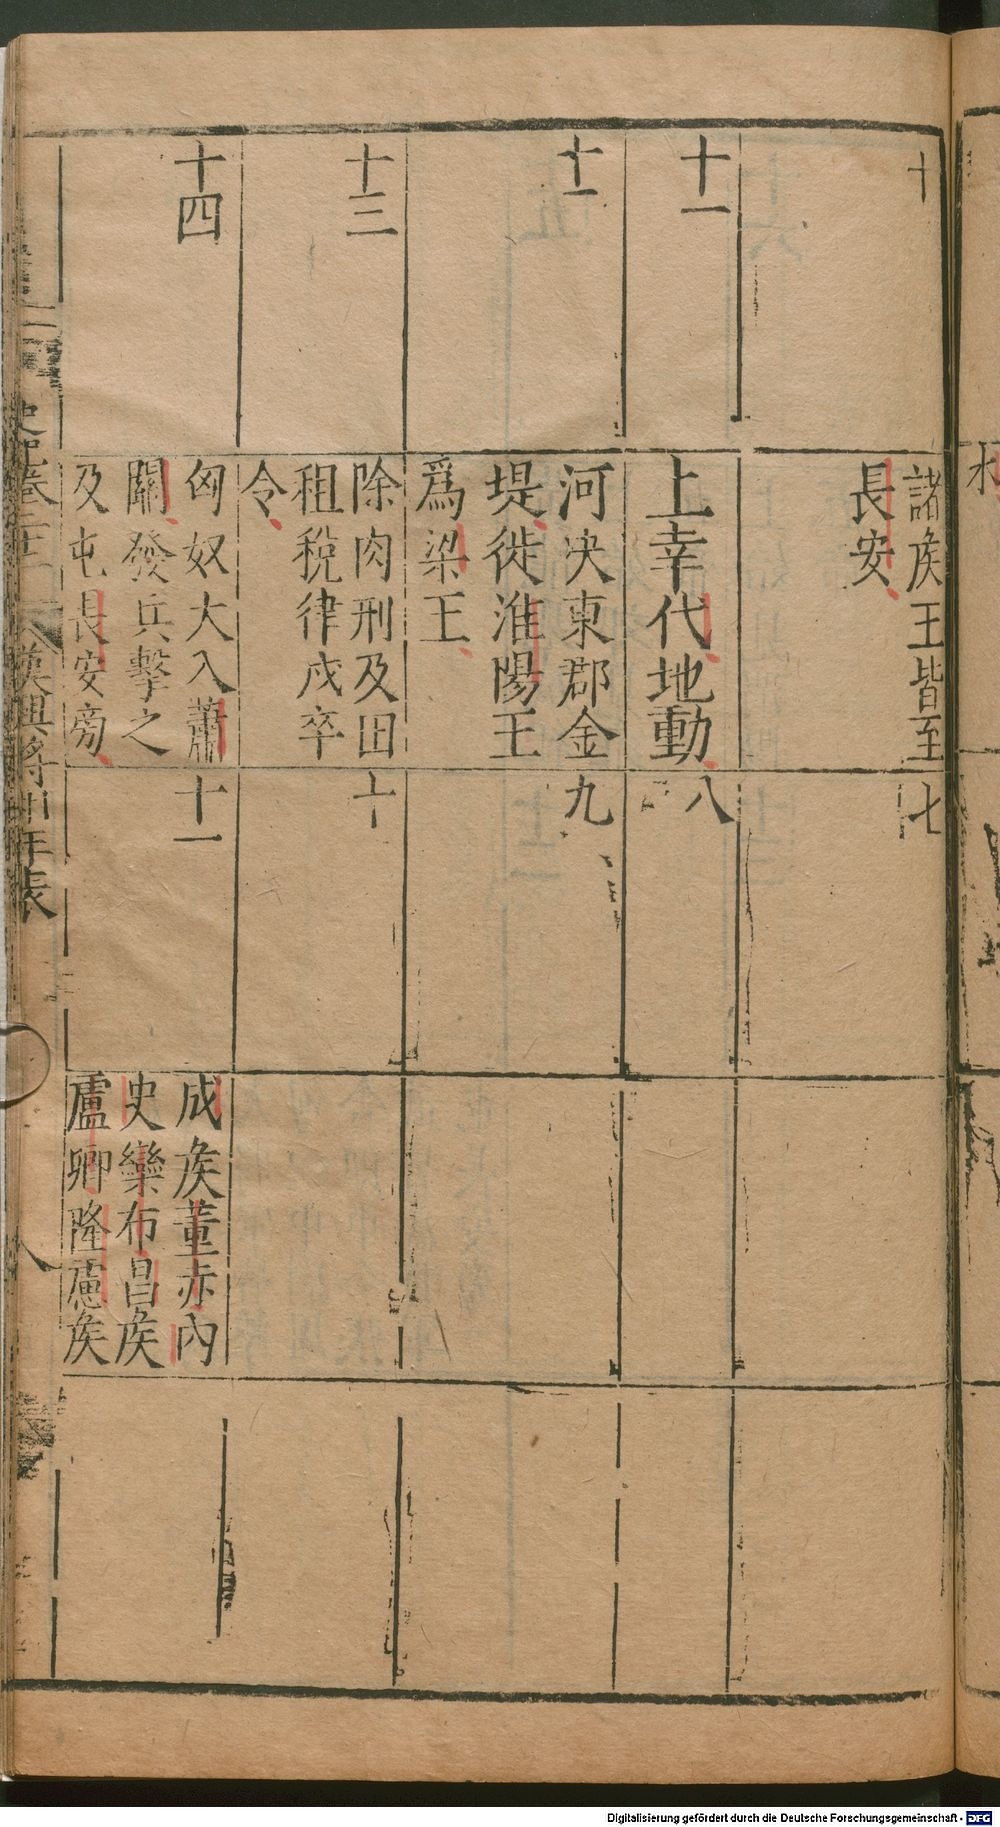 十
諸矦王皆至
長安
七
十一
上幸代地動
八
十一
河决東郡金
堤徙淮陽王
爲梁王
九
十三
除肉刑及田
租稅律戍卒
令
十
十四
匈奴大入蕭
關發兵擊之
及屯長安旁
十一
成矦董赤內
史欒布昌矦
盧卿隆慮矦
漢興將相年表
八
Digitalisierung gefördert durch die Deutsche Forschungsgemeinschaft - DFG